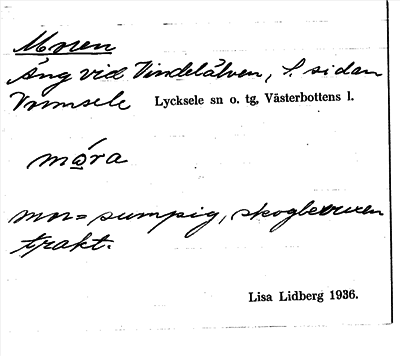 Moren
Äng vid Vindelälven, S. sidan
Vormsele Lycksele sn o. tg, Västerbottens l.
móra
mor= sumpig, skogbevuxen
trakt.
Lisa Lidberg 1936.